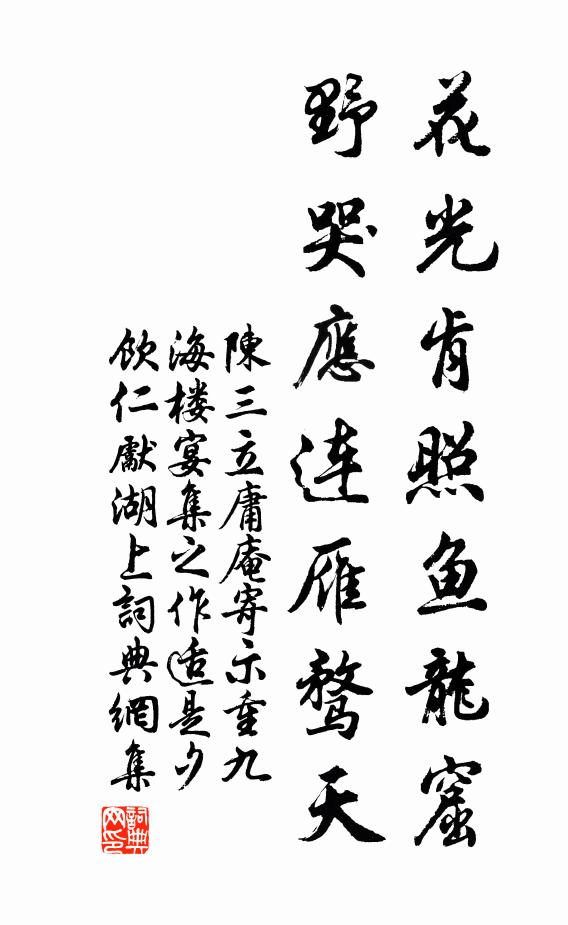 花光肯照鱼龍窟
野哭應连雁鹜天
陳三立庸庵寄示重九
海楼宴集之作适是夕
飲仁獻湖上詞典網集
詞典网印